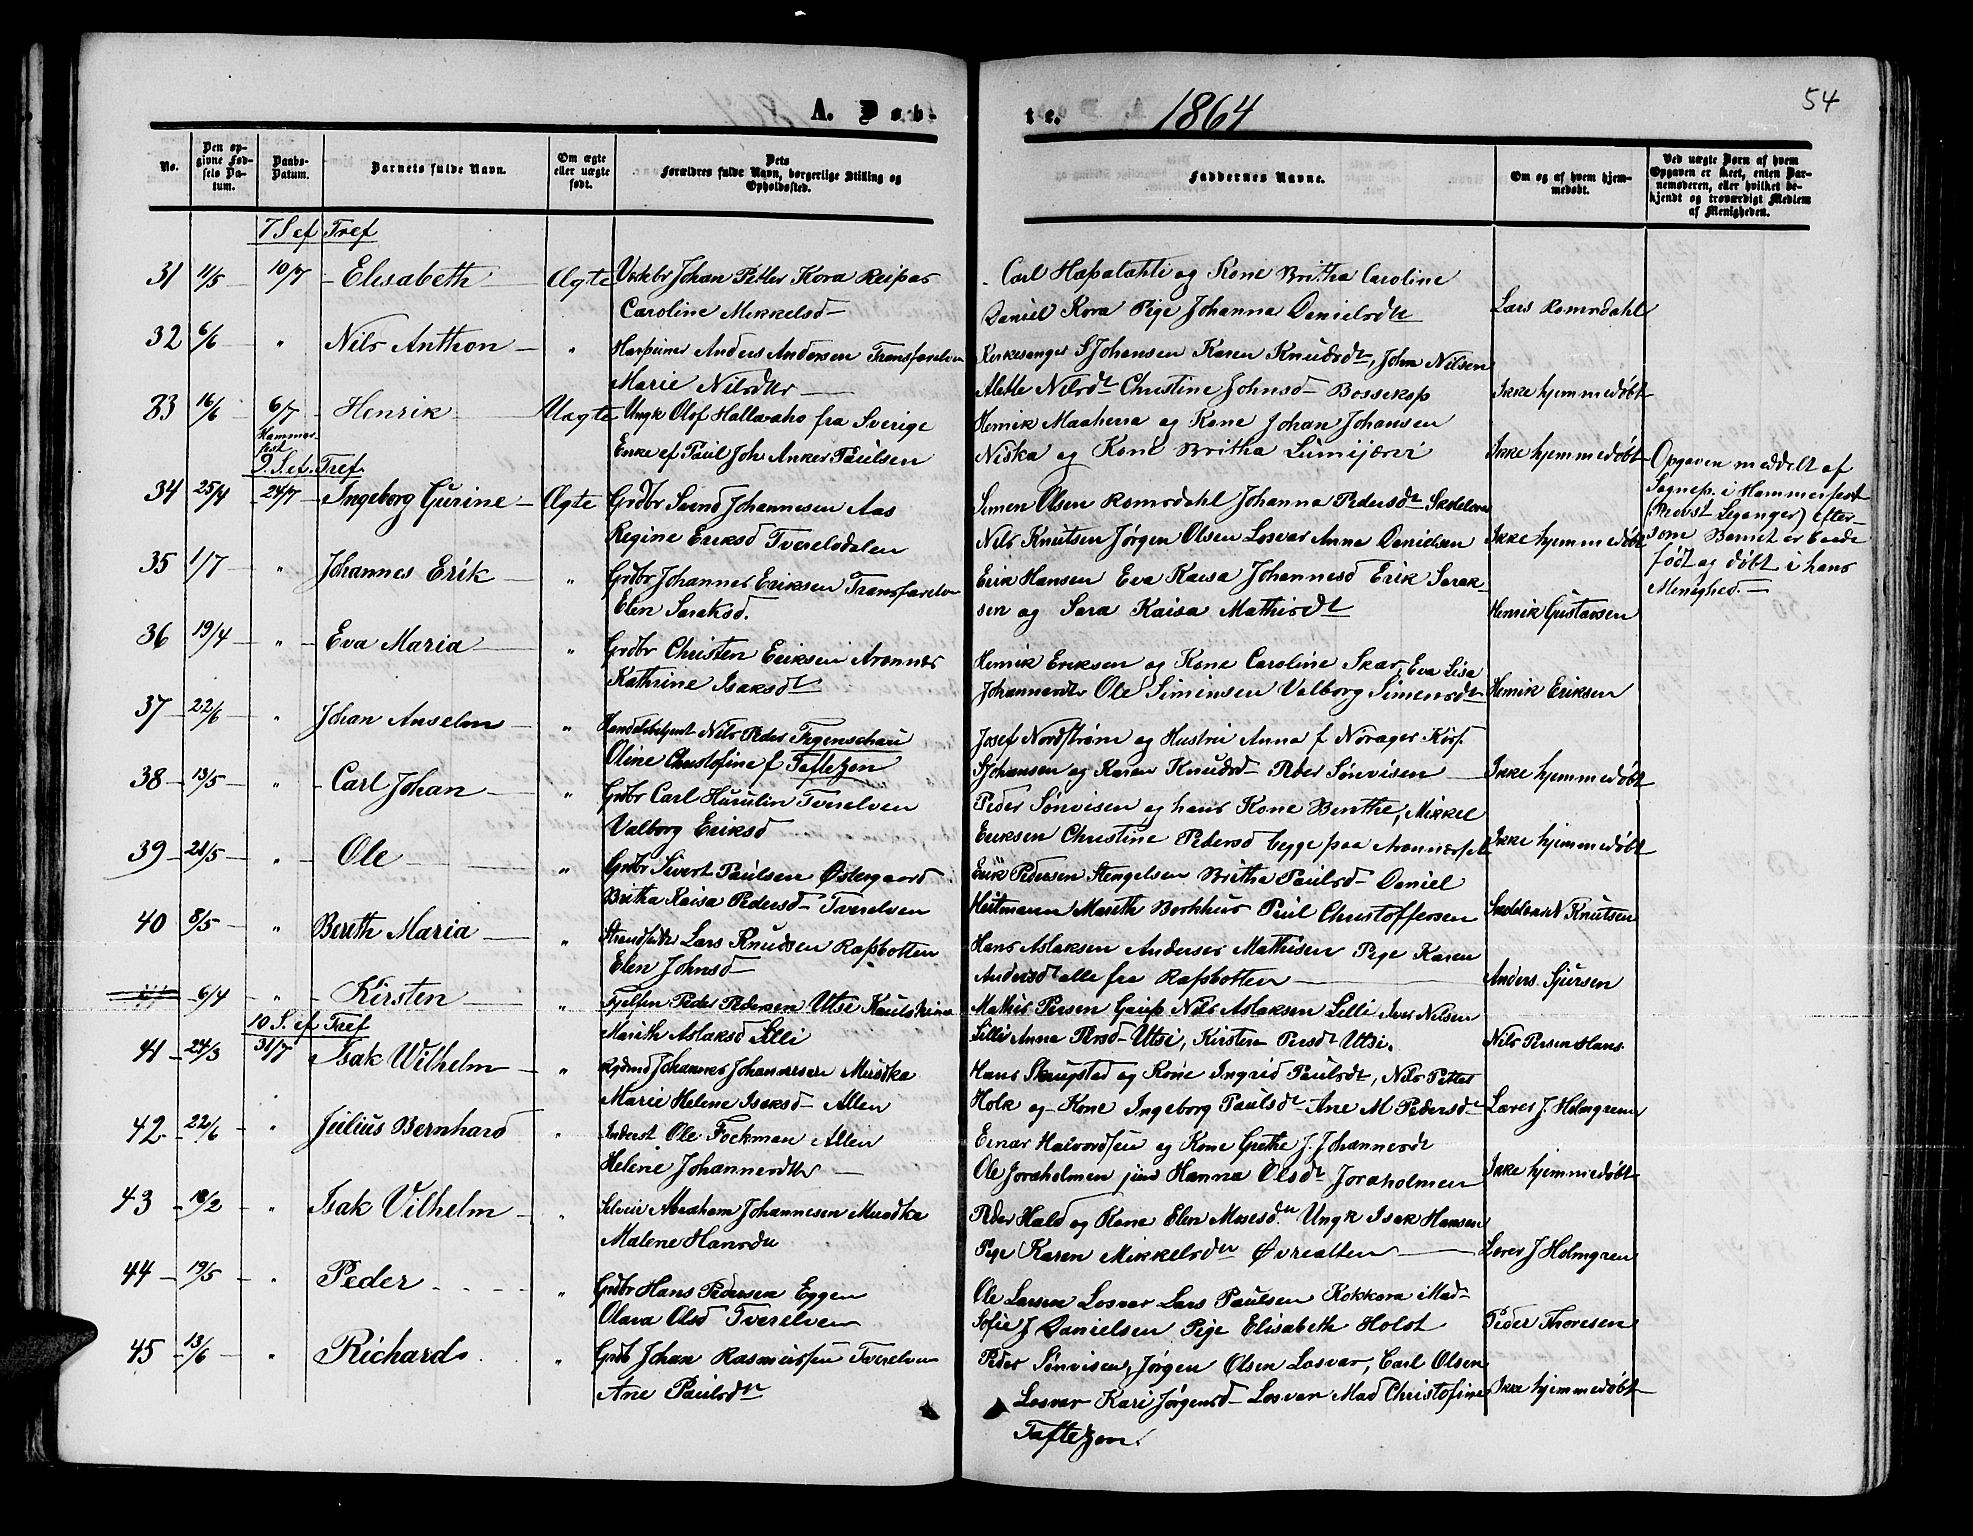 A. Døb-
te. 1864
54
No.
Den op-
givne Fød-
sels Da-
tum.
Daabs-
Datum.
Barnets fulde Navn.
Om ægte
eller uægte
født.
Dets
Forældres fulde Navn, borgerlige Stilling og
Opholdssted.
Faddernes Navne.
Om og af hvem hjem-
medøbt.
Ved uægte Børn af hvem
Opgaven er skeet, enten Bar-
nemoderen, eller hvilket be-
kjendt og troværdigt Medlem
af Menigheden.
7 S ef Tref
31 11/5 10/7 Elisabeth Ægte Johan Petter Kora Reipas
Caroline Mikkelsd
Carl Hapalahti og Kone Britha Caroline
Daniel Kora Pige Johanna Danielsdt
Lars Romsdahl
32 6/6 " Nils Anthon " Anders Andersen Transfarelven
Marie Nilsdtr
Kirkesanger SJohansen Karen Knudsdt, John Nilsen
Alette Nilsdt Christine Johnsd Bossekop
Ikke hjemmedøbt
33 16/6 6/7 Henrik Uægte Ungk Olof Hallavaho fra Sverige
Hammer-
fest
Enke ef Paul Joh Anker Paulsen
Henrik Maaherra og Kone Johan Johansen
Niska og Kone Britha Lumijervi
Ikke hjemmedøbt
Opgaven meddelt af
Sognep. i Hammerfest
(Provst Leganger) efter-
som Barnet er baade
født og døbt i hans
Menighed.
9 S. ef. Tref
34 25/4 24/7 Ingeborg Gurine Ægte Grdbr Svend Johannesen Aas
Regine Eriksd Tverelvdalen
Simen Olsen Romsdahl Johanna Pedersdt
Nils Knutsen Jørgen Olsen Losvar Anna Danielsen
Ikke hjemmedøbt
35 1/7 " Johannes Erik " Grdbr Johannes Eriksen Transfarelv
Elen Saraksd.
Erik Hansen Eva Kaisa Johannesd Erik Sarak-
sen og Sara Kaisa Mathisdt
Henrik Gustavsen
36 19/4 " Eva Maria " Grdbr Christen Eriksen Aronnes
Kathrine Isaksdt
Henrik Eriksen og Kone Caroline Skar, Eva Lisa
Johannesdtr Ole Simensen Valborg Simensdt
Henrik Eriksen
37 22/6 " Johan Anselm " Handelsbetjent Nils Peder Fegenschau
Oline Christofine f Taftezon
Josef Nordstrøm og Hustru Anna f Norager
SJohansen og Karen Knudsd Peder Sønvisen
Ikke hjemmedøbt
38 13/5 " Carl Johan " Grdbr Carl Husulin Tverelven
Valborg Eriksd
Peder Sønvisen og hans Kone Berithe, Mikkel
Eriksen Christine Pedersd begge paa
Ikke hjemmedøbt
39 21/5 " Ole " Grdbr Sivert Paulsen Østergaard
Britha Kaisa Pedersd Tverelven
Erik Pedersen Stengelsen Britha Paulsd Daniel
Heitmann Mareth Borkhus Paul Christoffersen
N Knutsen
40 8/5 " Bereth Maria " Lars Knudsen Rafsbotten
Elen Johnsd
Hans Aslaksen Anderses Mathisen Pige Karen
Andersdt alle fra Rafsbotten
Anders. Sjursen
6/4 " Kirsten " Fjelfin Peder Pedersen Utsi Kautokeino
Marith Aslaksd Lilli
Mathis Persen Gaup Nils Aslaksen Lilli Iver Nilsen
Lilli Anna Persd Utsi, Kirsten Persdt Utsi.
Nils Persen Hans
10 S. ef Tref
41 24/3 31/7 Isak Wilhelm " Johannes Johannesen Musdka
Marie Helene Isaksd Alten
Hans Skaugstad og Kone Ingrid Paulsdt, Nils Petter
Holk og Kone Ingeborg Paulsdt Ane M Pedersdt
Lærer J. Holmgren
42 22/6 " Julius Bernhard " Inderst Ole Fockman Alten
Helene Johannesdtr
Einar Halvordsen og Kone Grethe J. Johannesdt
Ole Joraholmen jun Hanna Olsdt Joraholmen
Ikke hjemmedøbt
43 18/2 " Isak Vilhelm " Abraham Johannesen Musdka
Malene Hansdtr
Peder Hald og Kone Elen Mosesdtr Ungk Isak Hansen
Pige Karen Mikkelsdtr Øvrealten
Lærer J Holmgren
44 19/5 " Peder " Grdbr Hans Pedersen Eggen
Olava Olsd Tverelven
Ole Larsen Losvar Lars Paulsen Kokkora Mad-
Sofie J Danielsen Pige Elisabeth Holst
Peder Thoresen
45 13/6 " Richard " Grdb Johan Rasmussen Tverelven
Ane Paulsdtr
Peder Sønvisen, Jørgen Olsen Losvar, Carl Olsen
Losvar Kari Jørgensd Losvar Mad Christofine
Taftezon.
Ikke hjemmedøbt